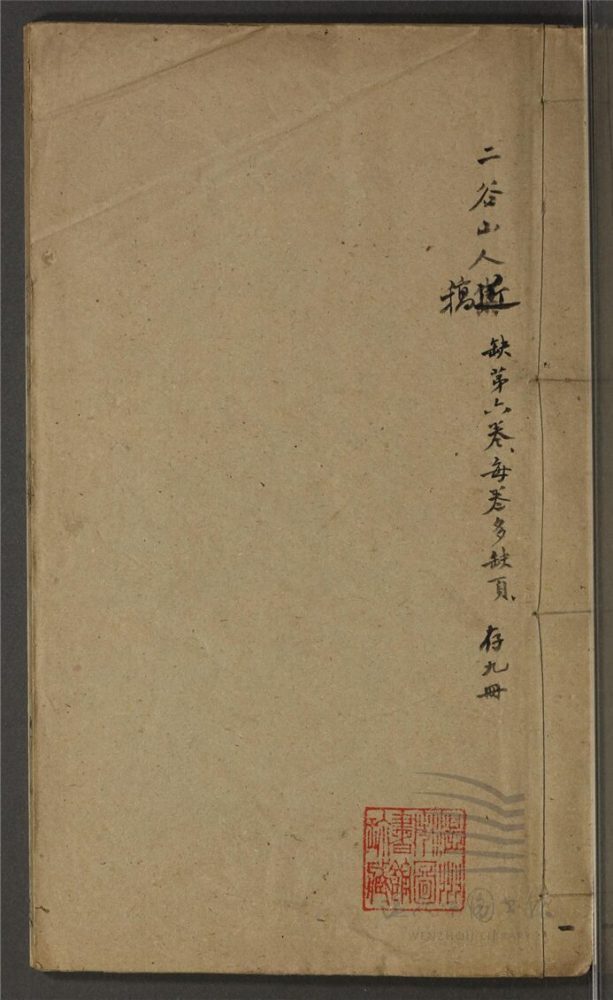 二谷山人近稿 缺第六卷、每卷多缺頁、存九冊
溫州
圖
書館
藏